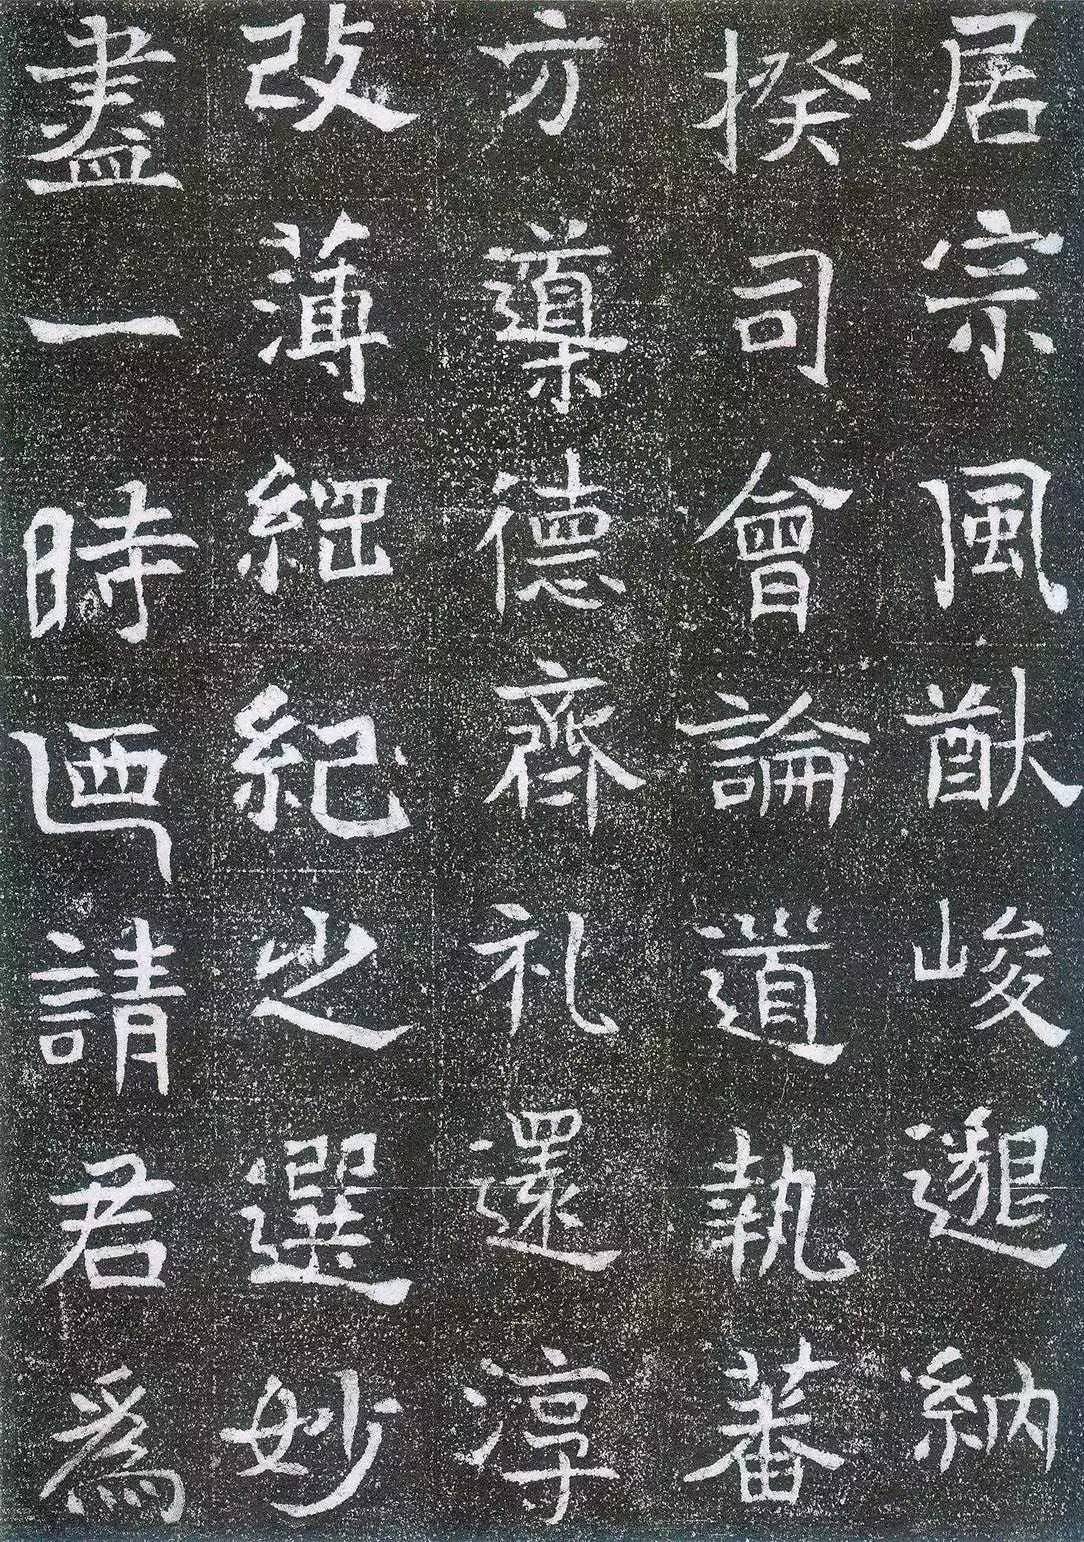 居宗風猷峻邈納
揆司會論道執蕃
方導德齊礼還淳
改薄綱紀之選妙
盡一時迺請君爲